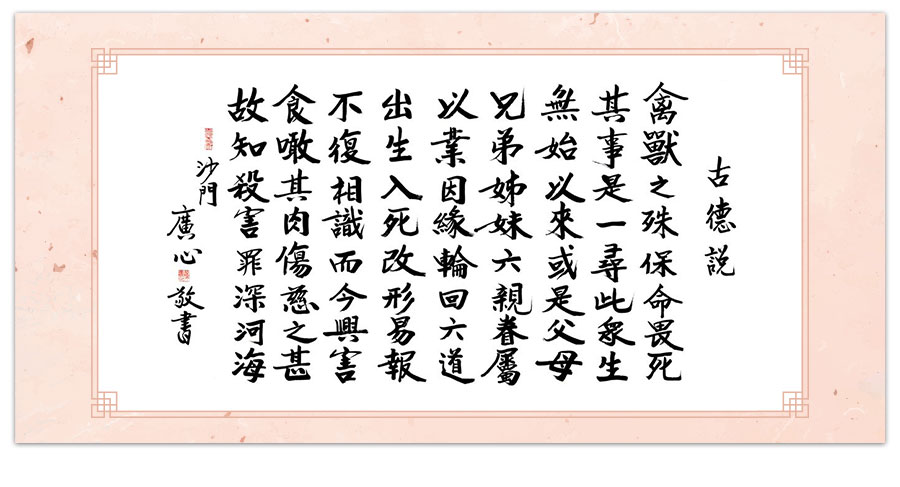 古德說
禽獸之殊保命畏死
其事是一尋此眾生
無始以來或是父母
兄弟姊妹六親眷屬
以業因緣輪回六道
出生入死改形易報
不復相識而今興害
食噉其肉傷慈之甚
故知殺害罪深河海
沙門
廣心敬書